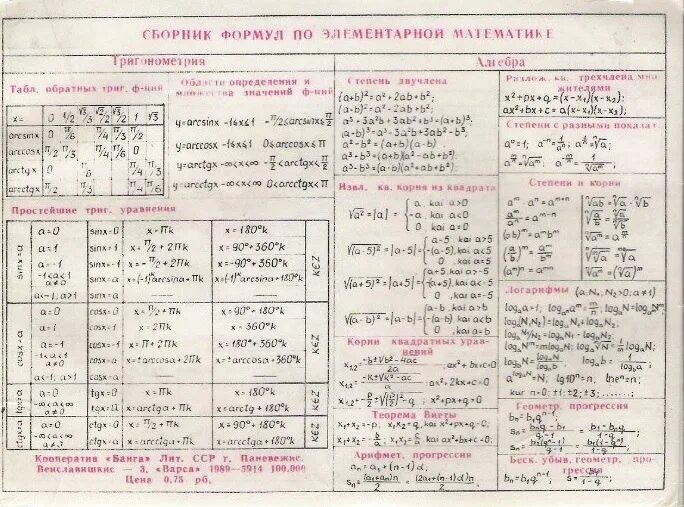 СБОРНИК ФОРМУЛ ПО ЭЛЕМЕНТАРНОЙ МАТЕМАТИКЕ
Тригонометрия
Табл. обратных триг. ф-ний
x= 0 1/2 √3/3 √2/2 √3/2 1 √3
arcsinx 0 π/6 π/4 π/3 π/2
arccosx π/2 π/3 π/4 π/6 0
arctgx 0 π/6 π/4 π/3
arcctgx π/2 π/3 π/4 π/6
Области определения и
множества значений ф-ний
y=arcsinx -1≤x≤1 -π/2≤arcsinx≤π/2
y=arccosx -1≤x≤1 0≤arccosx≤π
y=arctgx -∞<x<∞ -π/2<arctgx<π/2
y=arcctgx -∞<x<∞ 0<arcctgx<π
Простейшие триг. уравнения
sinx=a
a=0 sinx=0 x=πk x=180°k
a=1 sinx=1 x=π/2+2πk x=90°+360°k
a=-1 sinx=-1 x=-π/2+2πk x=-90°+360°k
-1<a<1 a≠0 sinx=a x=(-1)ᵏarcsina+πk x=(-1)ᵏarcsina+180°k
a<-1, a>1 sinx=a — —
k∈Z
cosx=a
a=0 cosx=0 x=π/2+πk x=90°+180°k
a=1 cosx=1 x=2πk x=360°k
a=-1 cosx=-1 x=π+2πk x=180°+360°k
-1<a<1 a≠0 cosx=a x=±arccosa+2πk x=±arccosa+360°k
a<-1, a>1 cosx=a — —
k∈Z
tgx=a
a=0 tgx=0 x=πk x=180°k
-∞<a<∞ a≠0 tgx=a x=arctga+πk x=arctga+180°k
k∈Z
ctgx=a
a=0 ctgx=0 x=π/2+πk x=90°+180°k
-∞<a<∞ ctgx=a x=arcctga+πk x=arcctga+180°k
k∈Z
Кооператив «Банга» Лит. ССР г. Паневежис.
Венславишкис — 3, «Варса» 1989—5914 100.000
Цена 0,75 рб.
Алгебра
Степень двучлена
(a+b)²=a²+2ab+b²;
(a-b)²=a²-2ab+b²;
a³+3a²b+3ab²+b³=(a+b)³;
(a-b)³=a³-3a²b+3ab²-b³.
a²-b²=(a+b)(a-b).
a³+b³=(a+b)(a²-ab+b²).
a³-b³=(a-b)(a²+ab+b²).
Извл. кв. корня из квадрата
√a²=|a|= { a, kai a>0
-a, kai a<0
0, kai a=0
√(a-5)²=|a-5|= { a-5, kai a>5
-(a-5), kai a<5
0, kai a=5
√(a+5)²=|a+5|= { a+5, kai a>-5
-(a+5), kai a<-5
0, kai a=-5
√(a-b)²=|a-b|= { a-b, kai a>b
-(a-b), kai a<b
0, kai a=b
Корни квадратных урав-
нений
x₁,₂=(-b±√b²-4ac)/2a; ax²+bx+c=0
x₁,₂=(-k±√k²-ac)/a; ax²+2kx+c=0
x₁,₂=-p/2±√(p/2)²-q; x²+px+q=0
Теорема Виеты
x₁+x₂=-p, x₁x₂=q, kai x²+px+q=0;
x₁+x₂=-b/a, x₁x₂=c/a, kai ax²+bx+c=0.
Арифмет. прогрессия
aₙ=a₁+(n-1)d;
Sₙ=(a₁+aₙ)n/2; =(2a₁+(n-1)d)n/2
Разлож. кв. трехчлена мно
жителями
x²+px+q=(x-x₁)(x-x₂);
ax²+bx+c=a(x-x₁)(x-x₂);
Степени с разными показат.
a⁰=1; a⁻ⁿ=1/aⁿ; a^(1/n)=ⁿ√a;
a^(m/n)=ⁿ√aᵐ; a^(-m/n)=1/ⁿ√aᵐ
Степени и корни
aᵐ·aⁿ=aᵐ⁺ⁿ
(ab)ᵐ=aᵐbᵐ
(aᵐ)ⁿ=aᵐⁿ
ⁿ√ab=ⁿ√a·ⁿ√b
Логарифмы (a,N₁,N₂>0; a≠1)
logₐ(N₁N₂)=logₐN₁+logₐN₂;
logₐN₁/N₂=logₐN₁-logₐN₂;
a^(logₐN)=N; lg10ⁿ=n; lneⁿ=n;
kur n=0;±1;±2;±3;......;
Геометр. прогрессия
bₙ=b₁qⁿ⁻¹
Беск. убыв. геометр. про-
грессия
bₙ=b₁qⁿ⁻¹, S=b₁/(1-q)